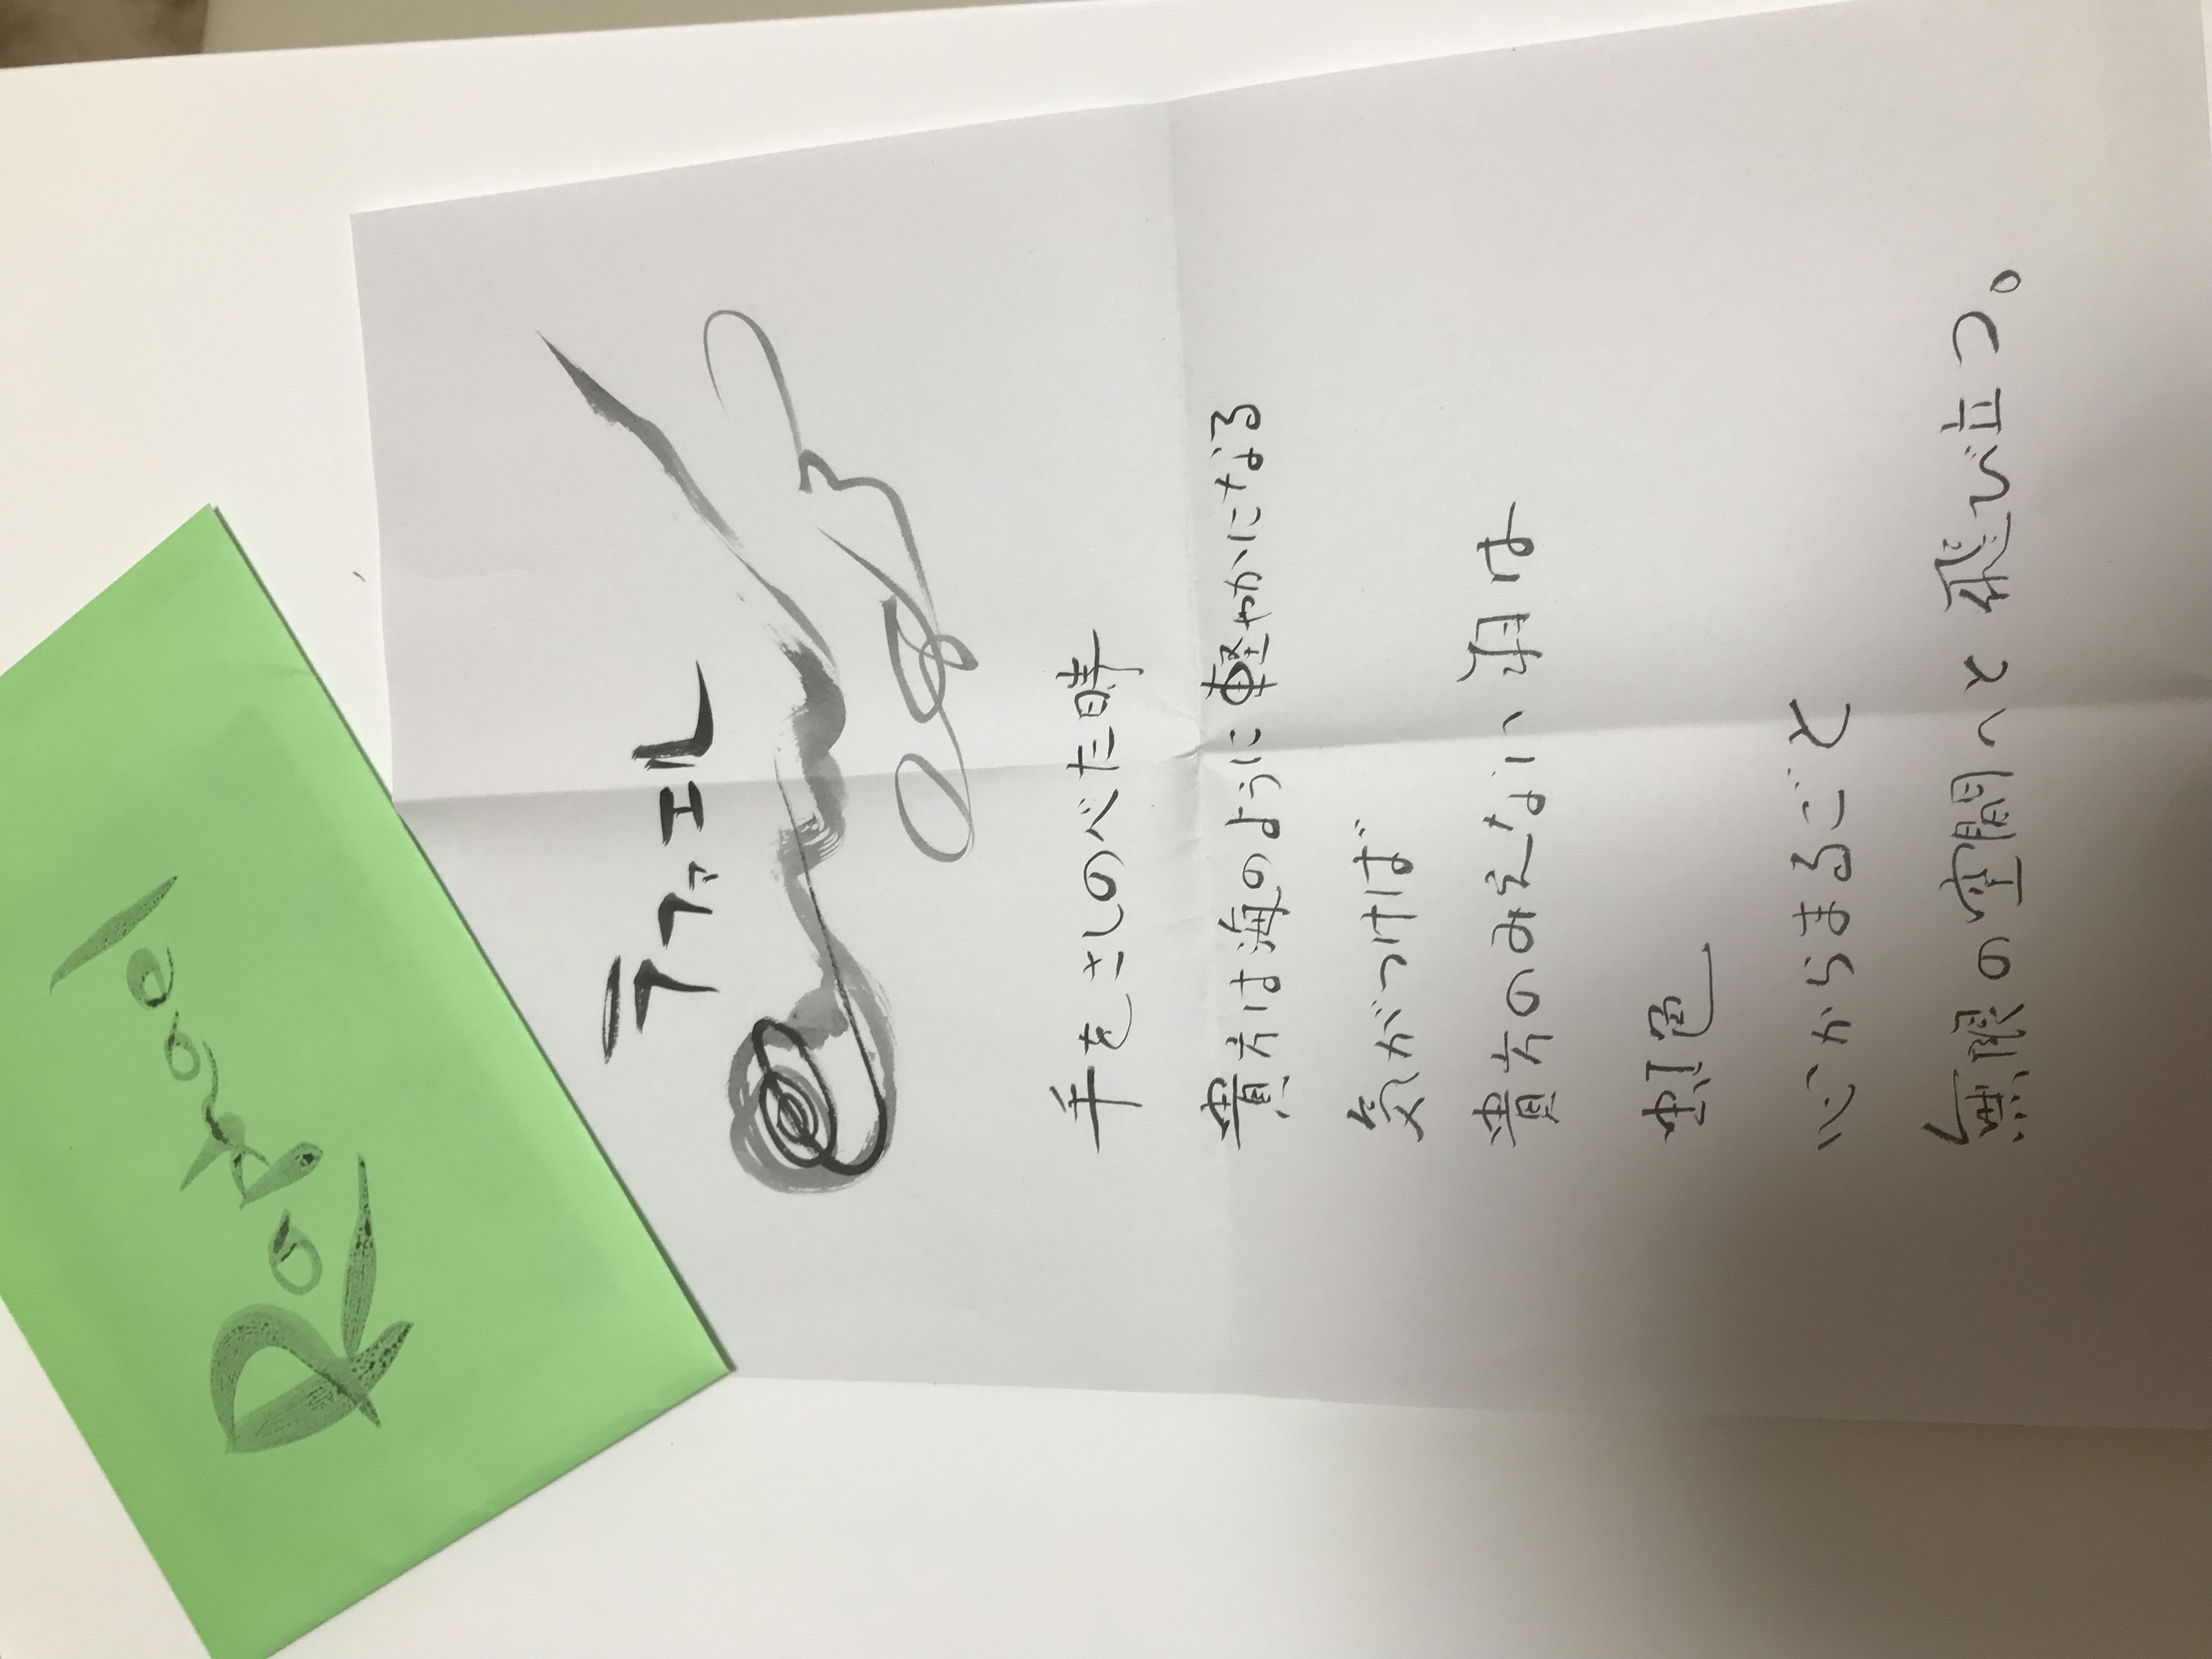 Rafael
ラファエル
手をさしのべた時
貴方は海のように軽やかになる
気がつけば
貴方のみえない羽は
虹色
心からまるごと
無限の空間へと飛び立つ。